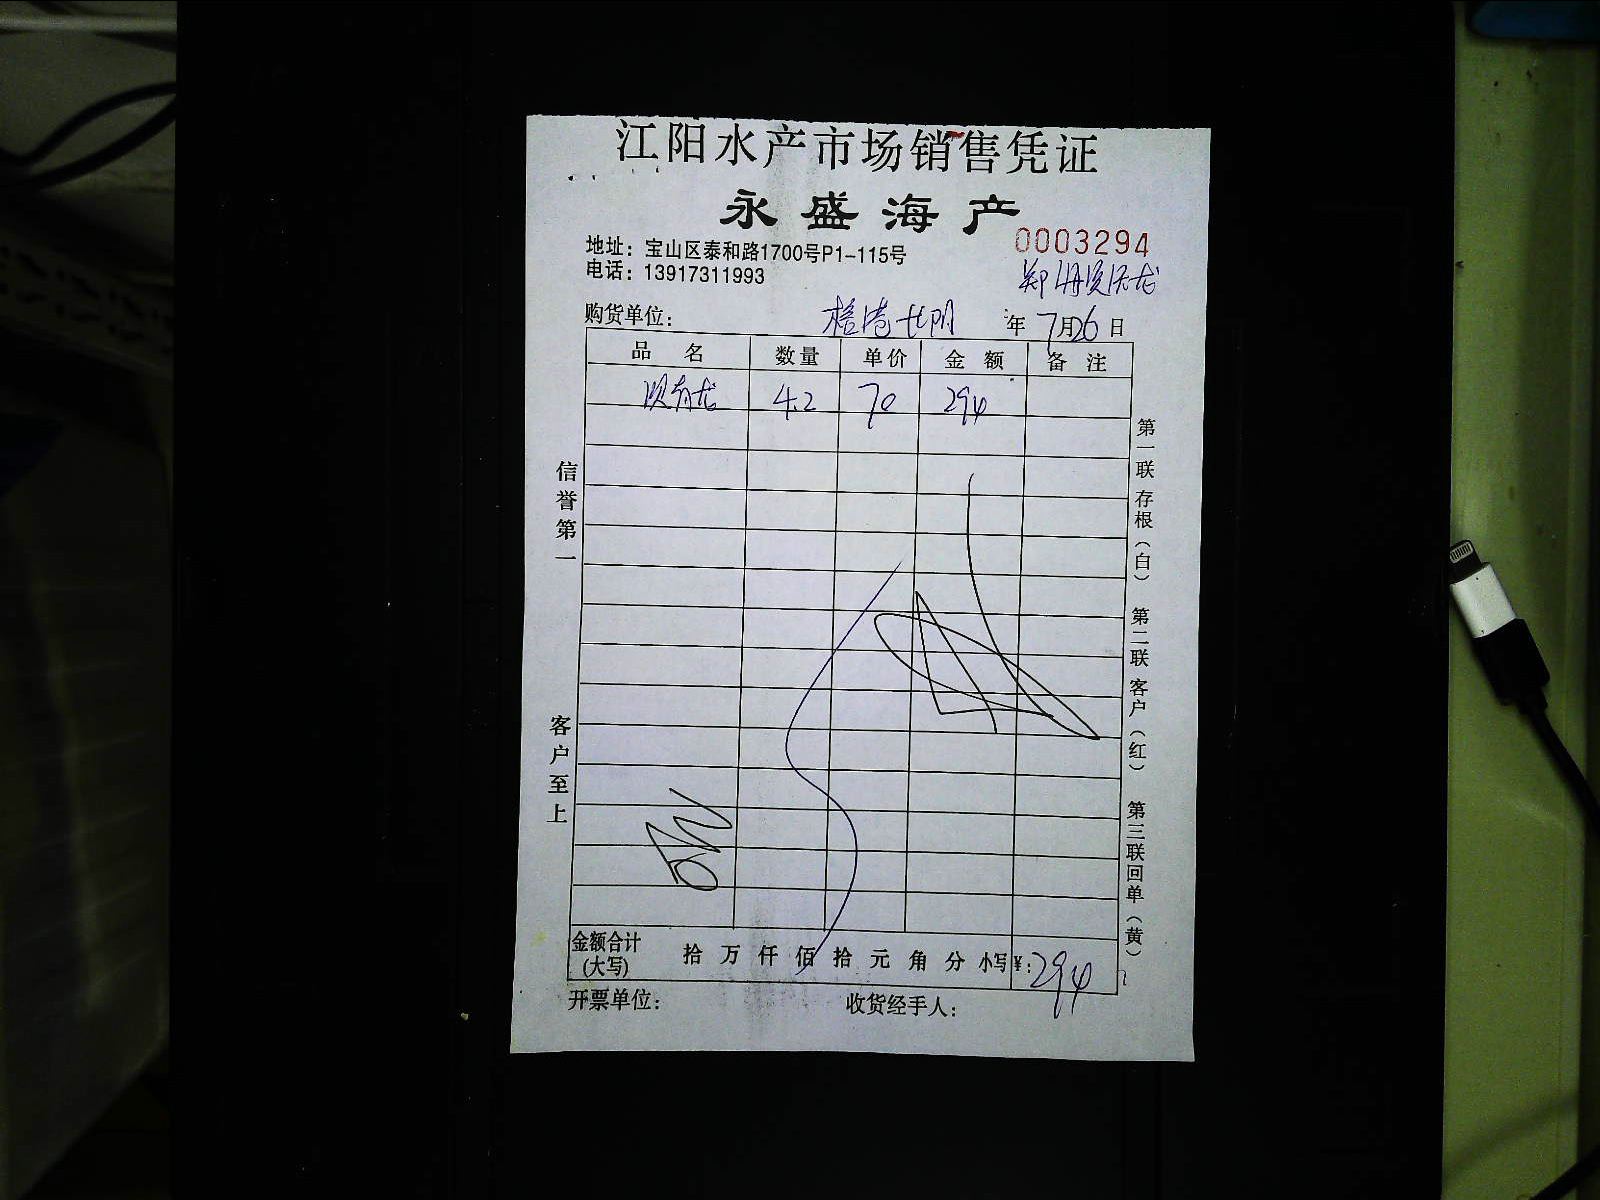 江阳水产市场销售凭证
永盛海产
0003294
地址：宝山区泰和路1700号P1-115号
电话：13917311993
购货单位： 年 7月26日
品名 数量 单价 金额 备注
4.2 70 294
信誉第一
客户至上
第一联 存根（白） 第二联 客户（红） 第三联回单（黄）
金额合计 拾 万 仟 佰 拾 元 角 分 小写¥：294
（大写）
开票单位： 收货经手人：